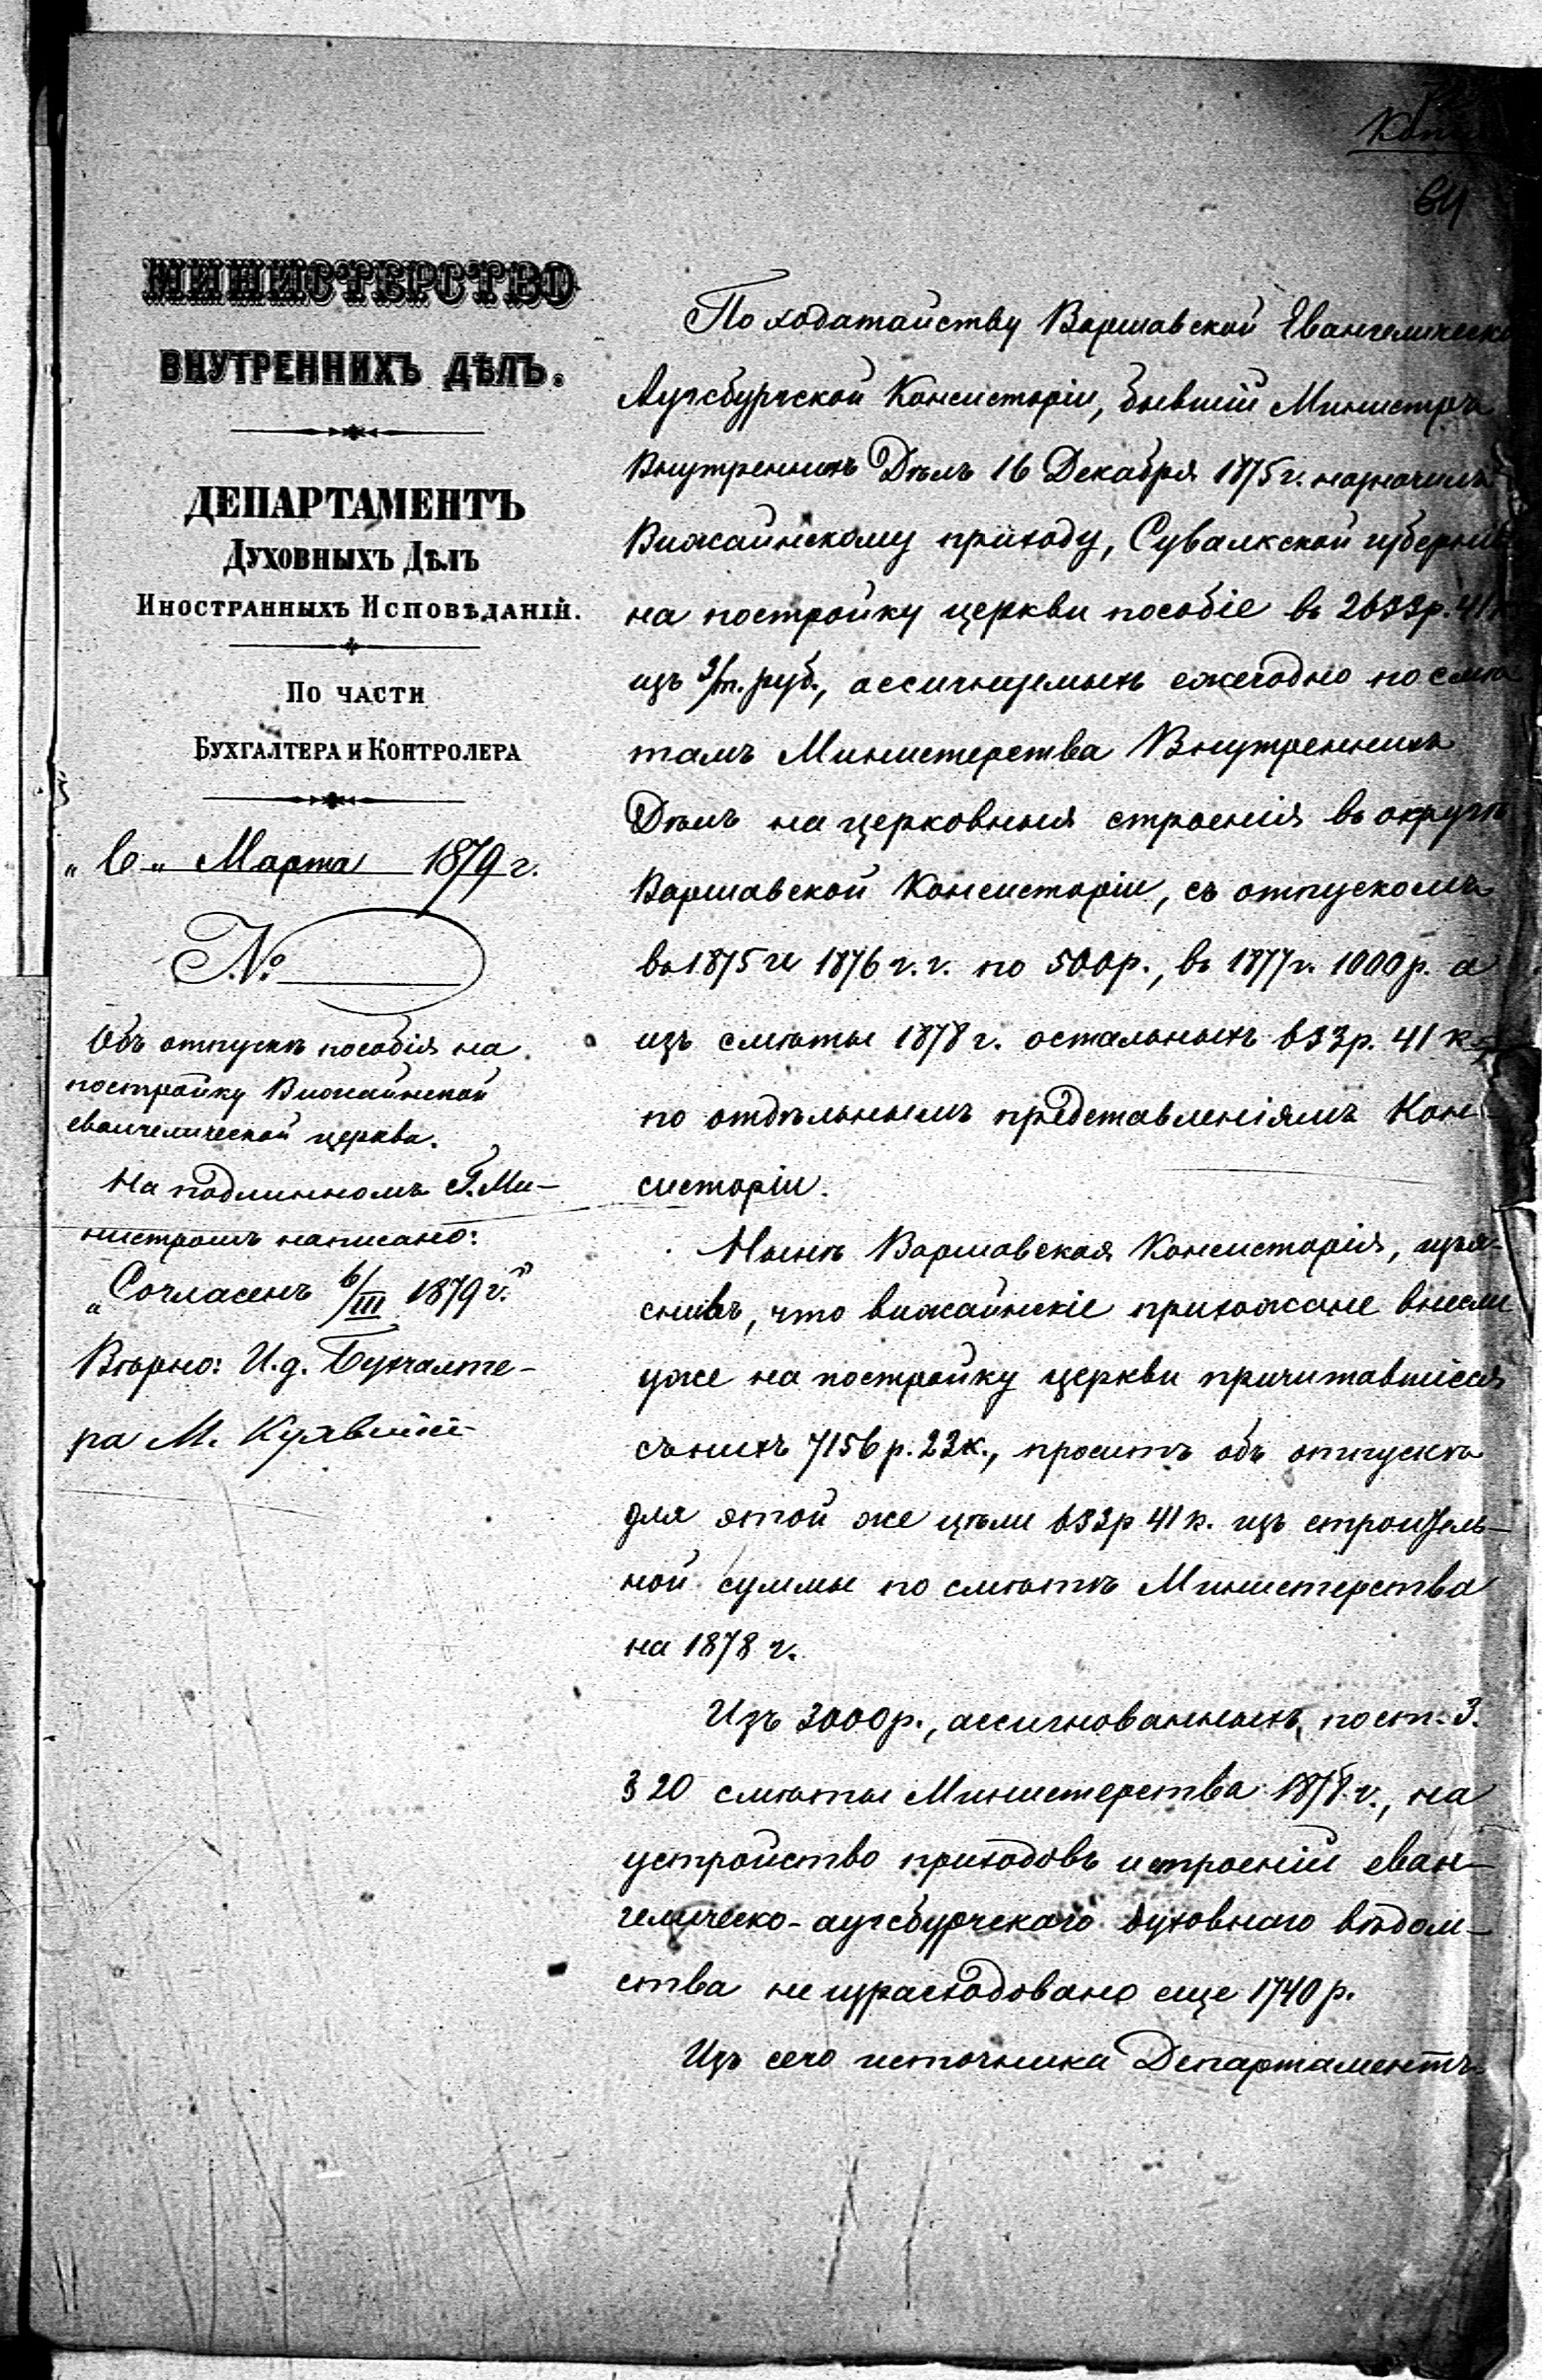 Копі
64
МИНИСТЕРСТВО
ВНУТРЕННИХЪ ДѢЛЪ.
ДЕПАРТАМЕНТЪ
ДУХОВНЫХЪ ДѢЛЪ
ИНОСТРАННЫХЪ ИСПОВѢДАНІЙ.
ПО ЧАСТИ
БУХГАЛТЕРА И КОНТРОЛЕРА
„6„ Марта 1879 г.
№
Объ отпускѣ пособія на
постройку Вижайнской
евангелической церкви.
На подлинномъ Г. Ми-
нистромъ написано:
„Согласенъ 6/III 1879 г.“
Вѣрно: И.д. Бухгалте-
ра М.
По ходатайству Варшавской Евангелическо
Аугсбургской Консисторіи, бывшій Министръ
Внутреннихъ Дѣлъ 16 Декабря 1875 г. назначилъ
Вижайнскому приходу, Сувалкской губерніи
на постройку церкви пособіе въ 2633 р. 41 к
изъ 3/т. руб., ассигнуемыхъ ежегодно по смѣ
тамъ Министерства Внутреннихъ
Дѣлъ на церковныя строенія въ округѣ
Варшавской Консисторіи, съ отпускомъ
въ 1875 и 1876 г.г. по 500 р., въ 1877 г. 1000 р. а
изъ смѣты 1878 г. остальныхъ 633 р. 41 к.,
по отдѣльнымъ представленіямъ Кон-
систоріи.
Нынѣ Варшавская Консисторія, изъя-
снивъ, что вижайнскіе прихожане внесли
уже на постройку церкви причитавшіеся
съ нихъ 7156 р. 22 к., проситъ объ отпускѣ
для этой же цѣли 633 р 41 к. изъ строитель-
ной суммы по смѣтѣ Министерства
на 1878 г.
Изъ 3000 р., ассигнованныхъ по ст. 3.
§ 20 смѣты Министерства 1878 г., на
устройство приходовъ и строеній еван-
гелическо-аугсбургскаго духовнаго вѣдом-
ства не израсходовано еще 1740 р.
Изъ сего источника Департаментъ